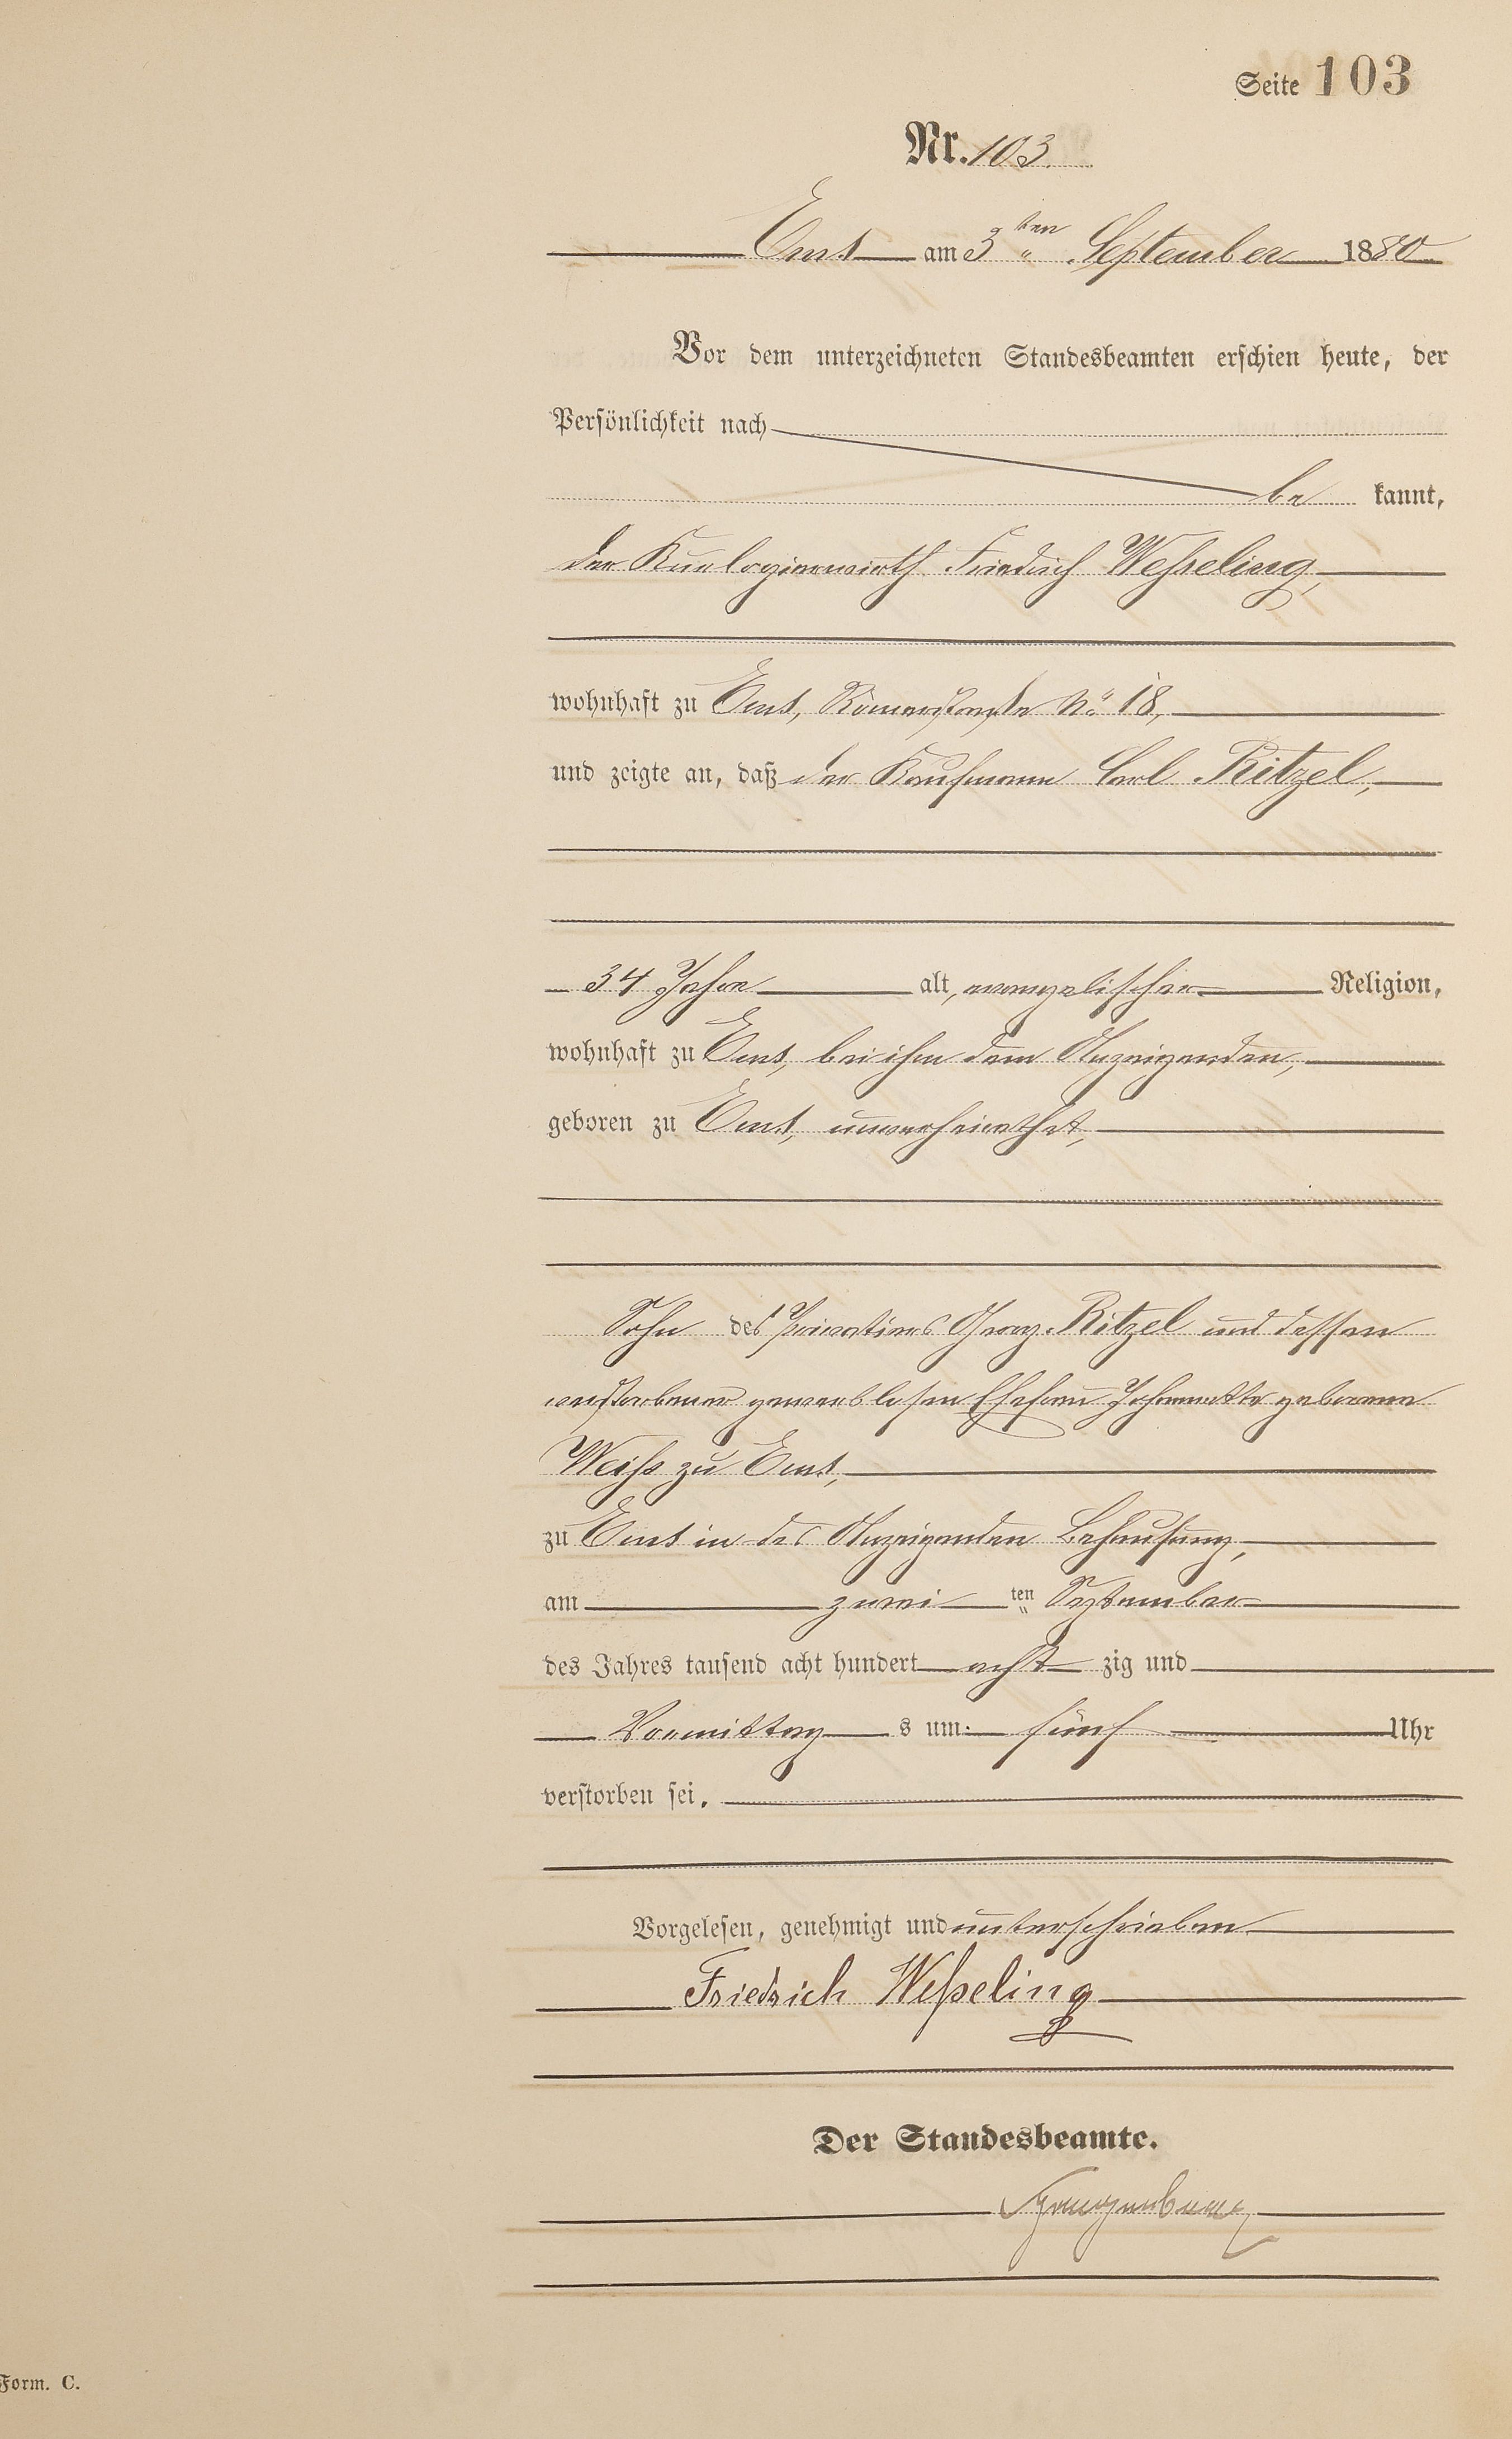 Seite 103
Nr. 103.
Ems am 3ten September 1880
Vor dem unterzeichneten Standesbeamten erschien heute, der
Persönlichkeit nach
be kannt,
der Kurlogierwirth Friedrich Weßeling,
wohnhaft zu Ems, Römerstraße No 18,
und zeigte an, daß der Kaufmann Carl Ritzel,
34 Jahre alt, evangelischer Religion,
wohnhaft zu Ems, bei ihm dem Anzeigenden,
geboren zu Ems, unverheirathet,
Sohn des Privatiers Georg Ritzel und dessen
verstorbener gewerblosen Ehefrau Johannette geborene
Weiß zu Ems,
zu Ems in des Anzeigenden Behausung,
am zwei ten September
des Jahres tausend acht hundert acht zig und
Vormittag s um fünf Uhr
verstorben sei.
Vorgelesen, genehmigt und unterschrieben
Friedrich Weßeling
Der Standesbeamte.
Form. C.